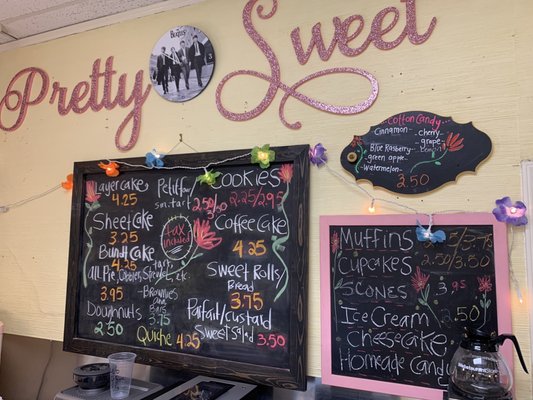 Pretty Sweet
The
BEATLES
Cotton Candy
Cinnamon - cherry
- grape
Blue Rasberry -
green apple
watermelon
3.50
Layer cake
4.25
Sheet Cake
3.25
Bundt Cake
4.25
3.95
Doughnuts
2.50
Petitfor
sm. tart
2.50
tax
included
Brownies
and
Bars
3.75
Quiche 4.25
Cookies
2.25/2.95
Coffee Cake
4.25
Sweet Rolls
Bread
3.75
Parfait/custard
Sweet Salad 3.50
Muffins 3.75
Cupcakes 2.50/3.50
Scones 3.95
Ice Cream 2.50
Cheesecake
Homeade Candy